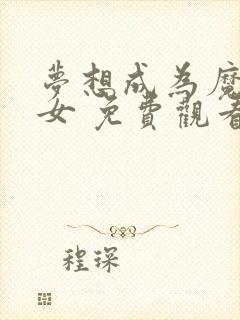 夢想成為魔
女 免費觀看
程琛